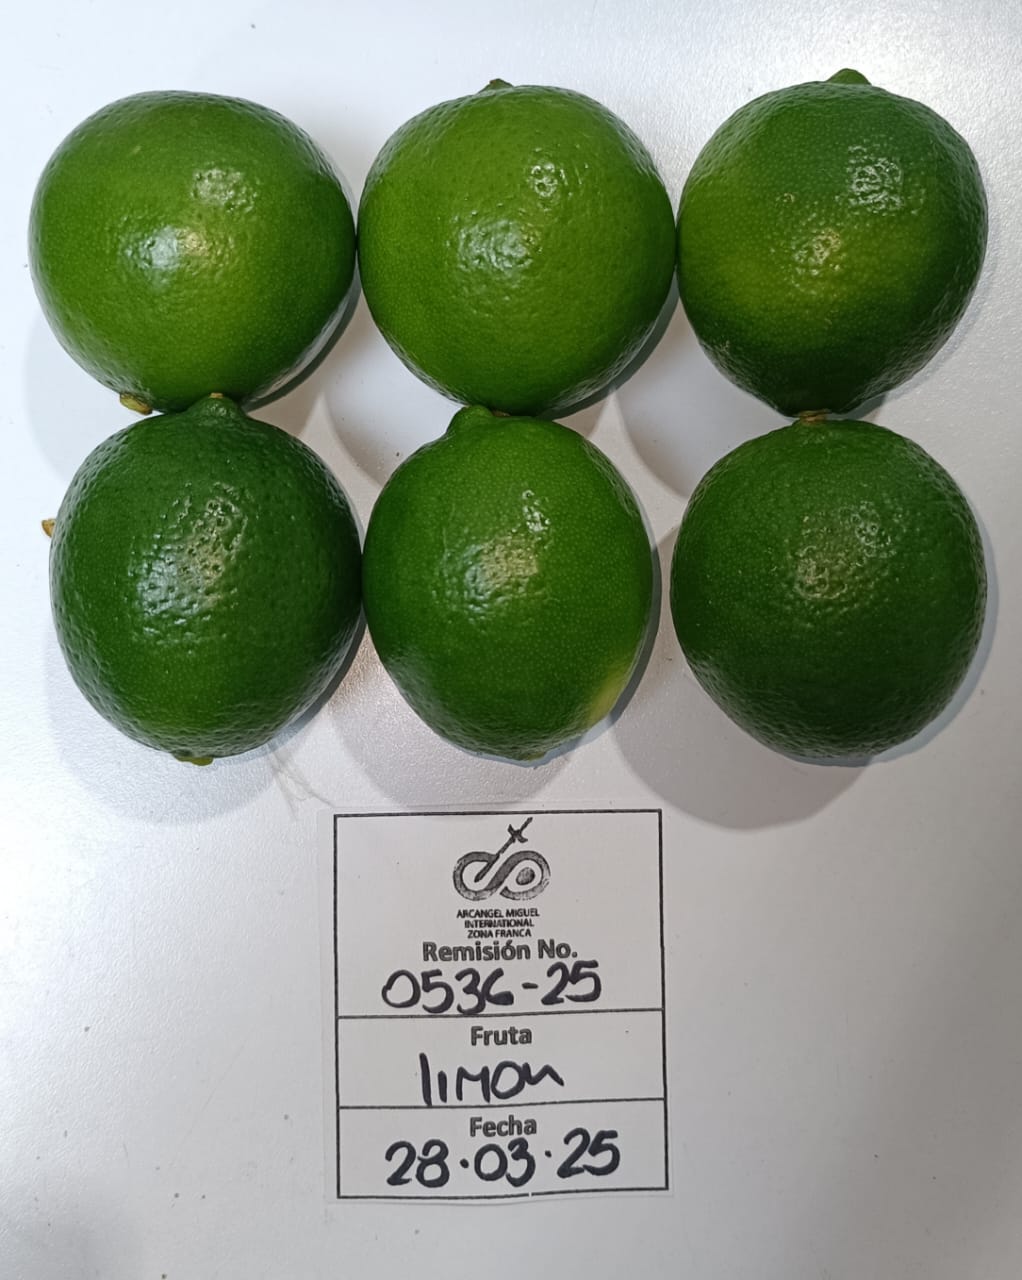 ARCANGEL MIGUEL
INTERNATIONAL
ZONA FRANCA
Remisión No.
0536-25
Fruta
limon
Fecha
28.03.25